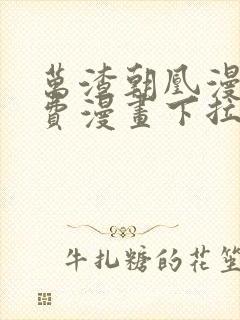 萬渣朝凰漫
費漫畫下拉
牛扎糖的花笙